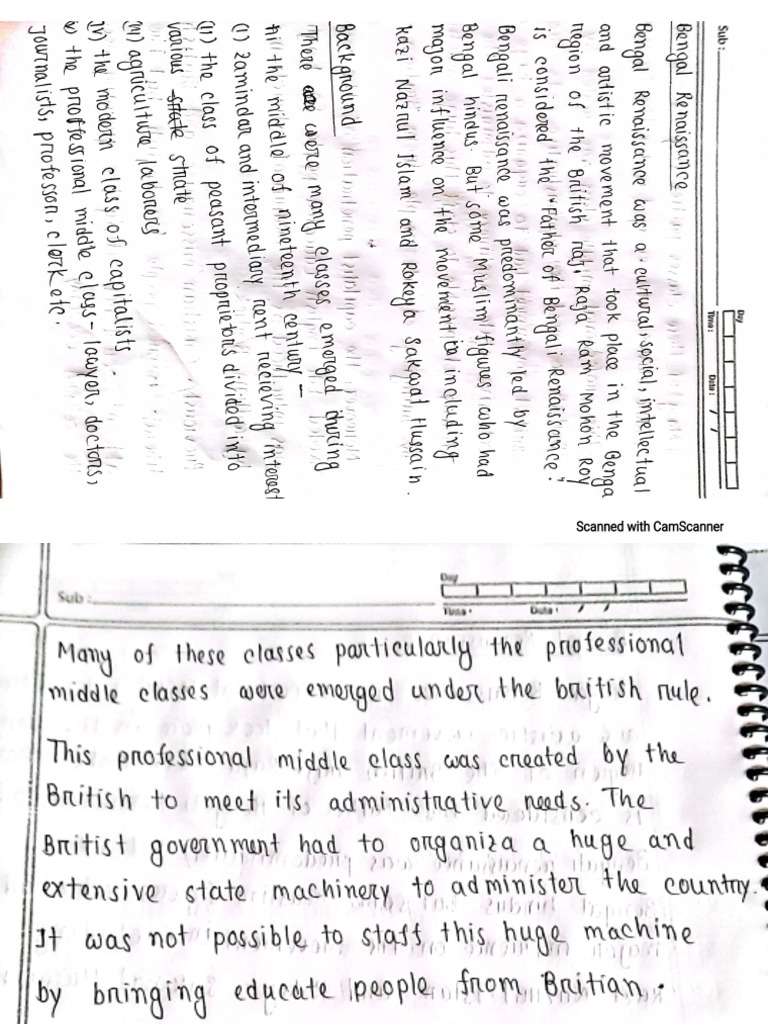 Sub:
Day
Time:
Date: / /
Bengal Renaissance
Bengal Renaissance was a cultural, social, intellectual
and artistic movement that took place in the Benga
region of the British raj. Raja Ram Mohon Roy
is considered the "Father of Bengali Renaissance."
Bengali renaissance was predominantly led by
Bengal hindus. But some Muslim figures who had
major influence on the movement including
kazi Nazrul Islam and Rokeya Sakawat Hussain.
Background
There were many classes emerged during
the middle of nineteenth century –
(i) Zamindar and intermediary rent recieving interest
(ii) the class of peasant proprietors divided into
various state strate
(iii) agriculture laborers
iv) the modern class of capitalists.
v) the proffessional middle class - lawyer, doctors,
journalists, professor, clerk etc.
Scanned with CamScanner
Sub:
Day
Time: Date: / /
Many of these classes particularly the professional
middle classes were emerged under the british rule.
This professional middle class was created by the
British to meet its administrative needs. The
Britist government had to organiza a huge and
extensive state machinery to administer the country.
It was not possible to staff this huge machine
by bringing educate people from Britian.